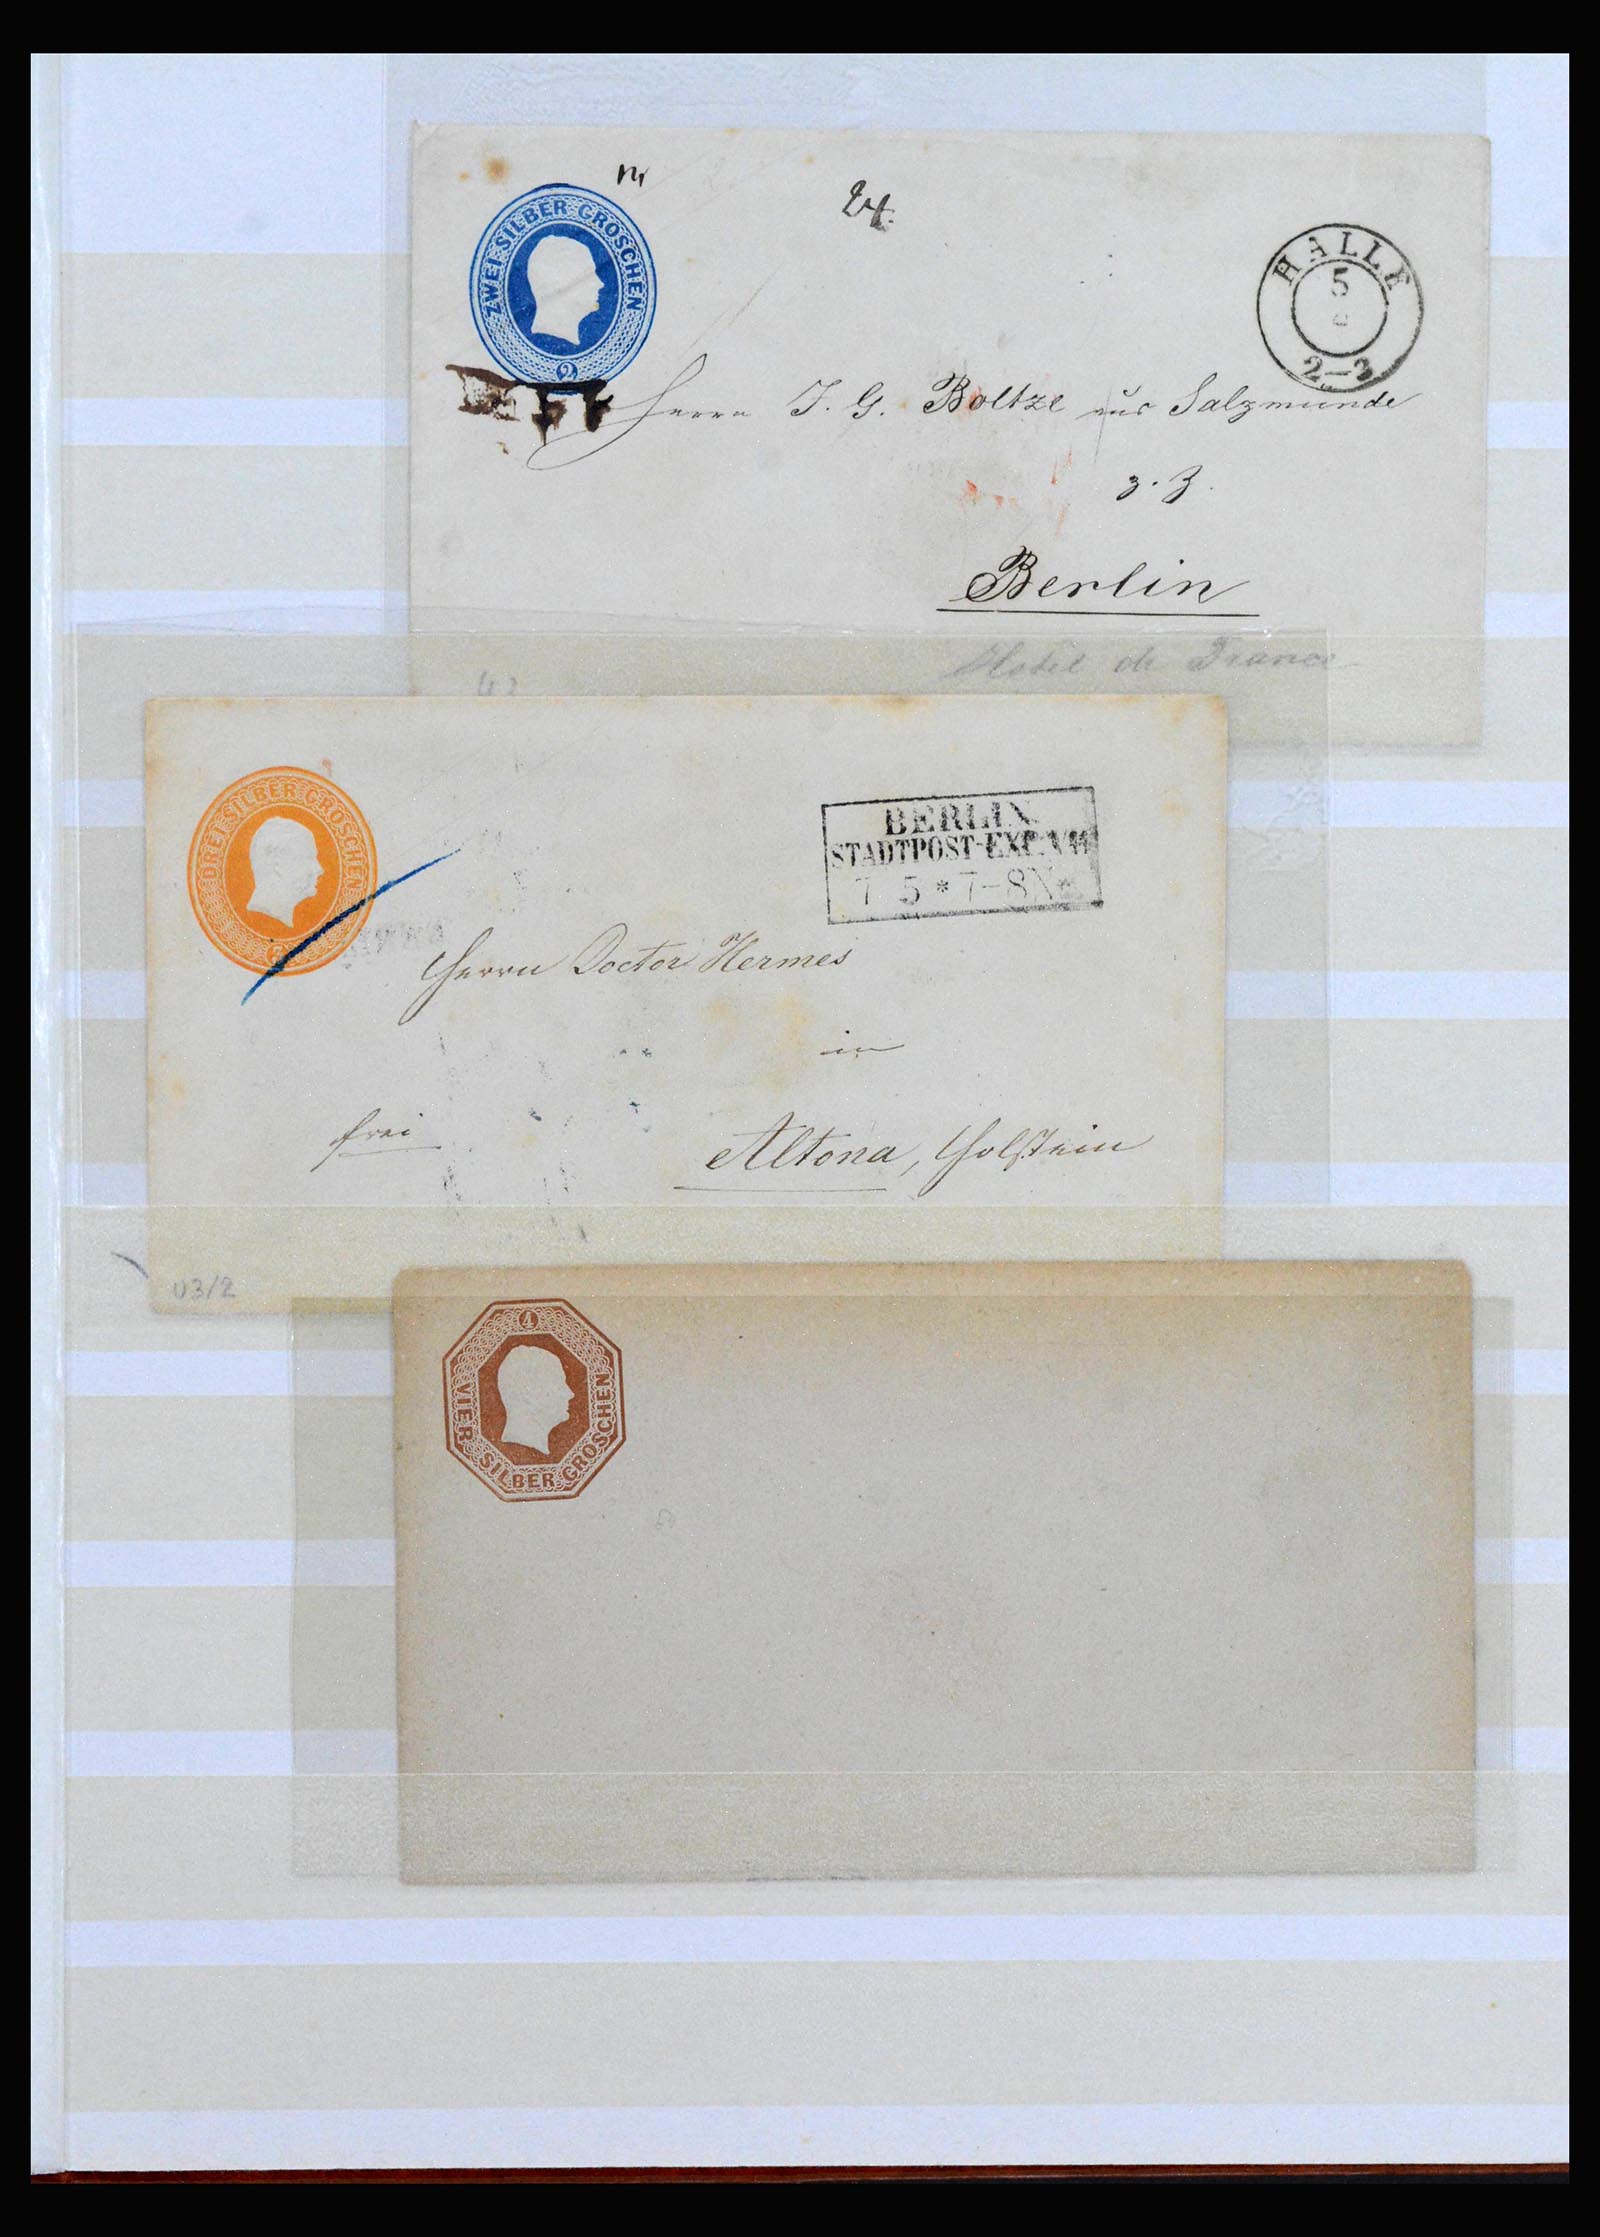 ZWEI SILBER GROSCHEN
2
HALLE
5
2-3
Herrn J. G. Boltze aus Salzmünde
z. Z.
Berlin
Hotel de France
DREI SILBER GROSCHEN
3
BERLIN
STADTPOST-EXP.
7 5 * 7-8 N *
Herrn Doctor Hermes
in
frei
Altona, Holstein
U3/2
4
VIER SILBER GROSCHEN